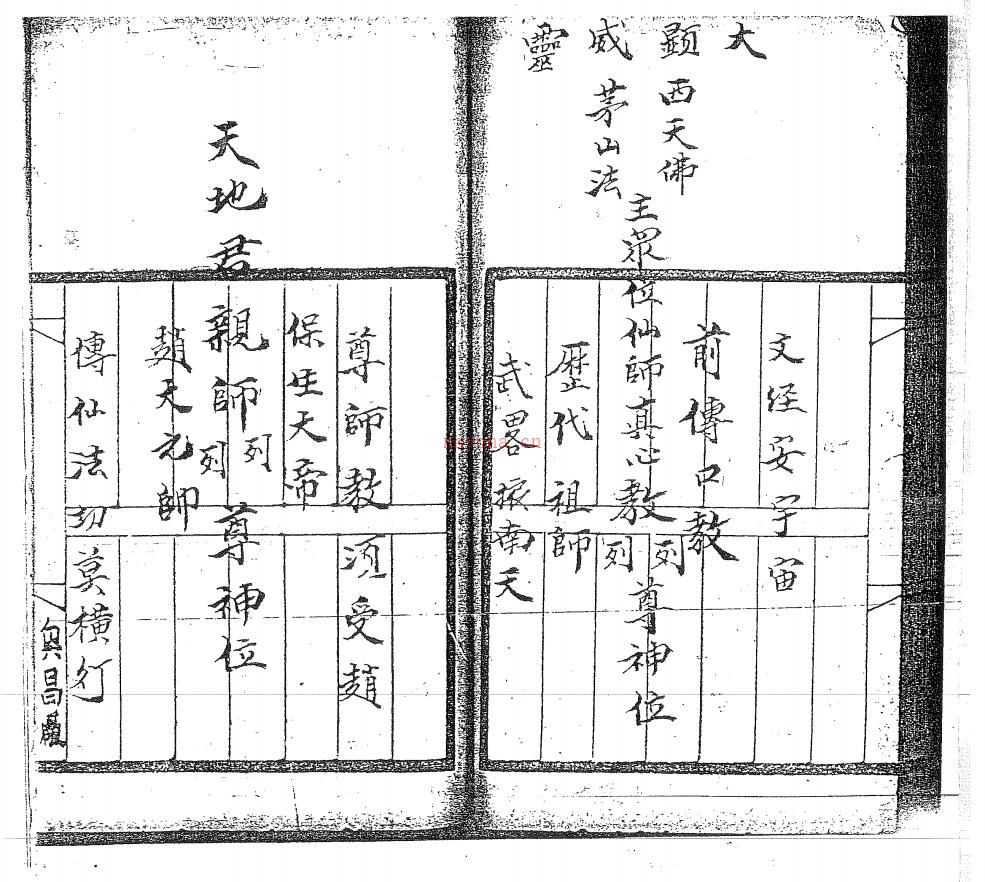 大顯威靈
文经安宇宙
西天佛
前傳口教
主眾位仙師真心教列列尊神位
茅山法
歷代祖師
武畧振南天
尊師教須受趙
保生天帝
天地君親師列列尊神位
趙天元帥
傳仙法切莫橫行
昌
nayona.cn